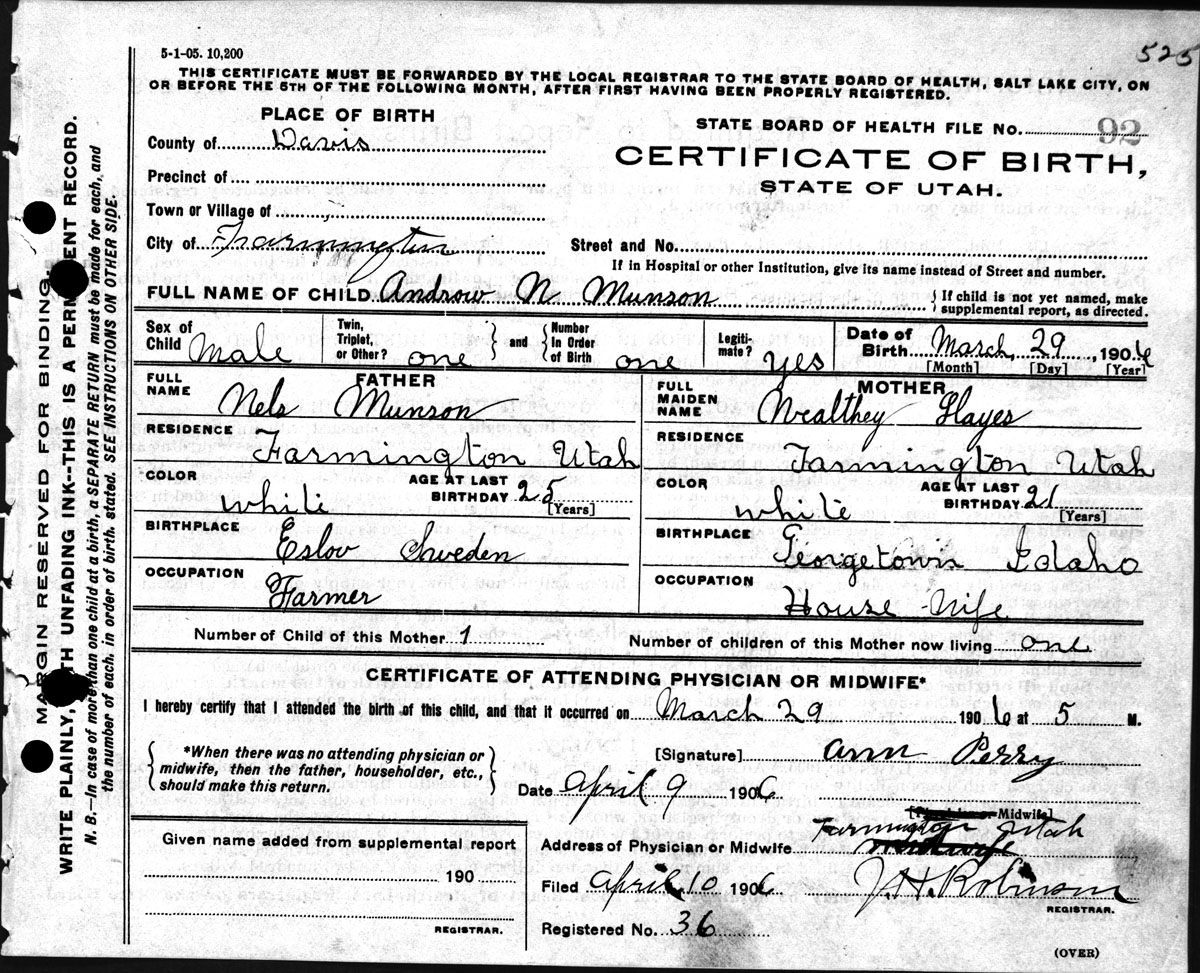 525
5-1-05. 10,200
THIS CERTIFICATE MUST BE FORWARDED BY THE LOCAL REGISTRAR TO THE STATE BOARD OF HEALTH, SALT LAKE CITY, ON
OR BEFORE THE 5TH OF THE FOLLOWING MONTH, AFTER FIRST HAVING BEEN PROPERLY REGISTERED.
PLACE OF BIRTH
County of Davis
Precinct of
Town or Village of
City of Farmington
STATE BOARD OF HEALTH FILE NO. 92
CERTIFICATE OF BIRTH,
STATE OF UTAH.
Street and No.
If in Hospital or other Institution, give its name instead of Street and number.
FULL NAME OF CHILD Androw N Munson
If child is not yet named, make
supplemental report, as directed.
Sex of Child Male
Twin, Triplet, or Other? one
and
Number In Order of Birth one
Legiti-mate? Yes
Date of Birth March 29, 1906
[Month] [Day] [Year]
FATHER
FULL NAME Nels Munson
RESIDENCE Farmington Utah
COLOR white
AGE AT LAST BIRTHDAY 25
[Years]
BIRTHPLACE Eslov Sweden
OCCUPATION Farmer
MOTHER
FULL MAIDEN NAME Wealthey Hayes
RESIDENCE Farmington Utah
COLOR white
AGE AT LAST BIRTHDAY 21
[Years]
BIRTHPLACE Georgetown Idaho
OCCUPATION House Wife
Number of Child of this Mother 1
Number of children of this Mother now living one
CERTIFICATE OF ATTENDING PHYSICIAN OR MIDWIFE*
I hereby certify that I attended the birth of this child, and that it occurred on March 29 1906 at 5 M.
*When there was no attending physician or
midwife, then the father, householder, etc.,
should make this return.
[Signature] Ann Perry
Date April 9 1906
[Physician or Midwife]
Farmington Utah
Address of Physician or Midwife Midwife
Given name added from supplemental report
190
REGISTRAR.
Filed April 10 1906 J.H. Robinson
REGISTRAR.
Registered No. 36
(OVER)
MARGIN RESERVED FOR BINDING.
WRITE PLAINLY, WITH UNFADING INK--THIS IS A PERMANENT RECORD.
N. B.—In case of more than one child at a birth, a SEPARATE RETURN must be made for each, and
the number of each, in order of birth, stated. SEE INSTRUCTIONS ON OTHER SIDE.